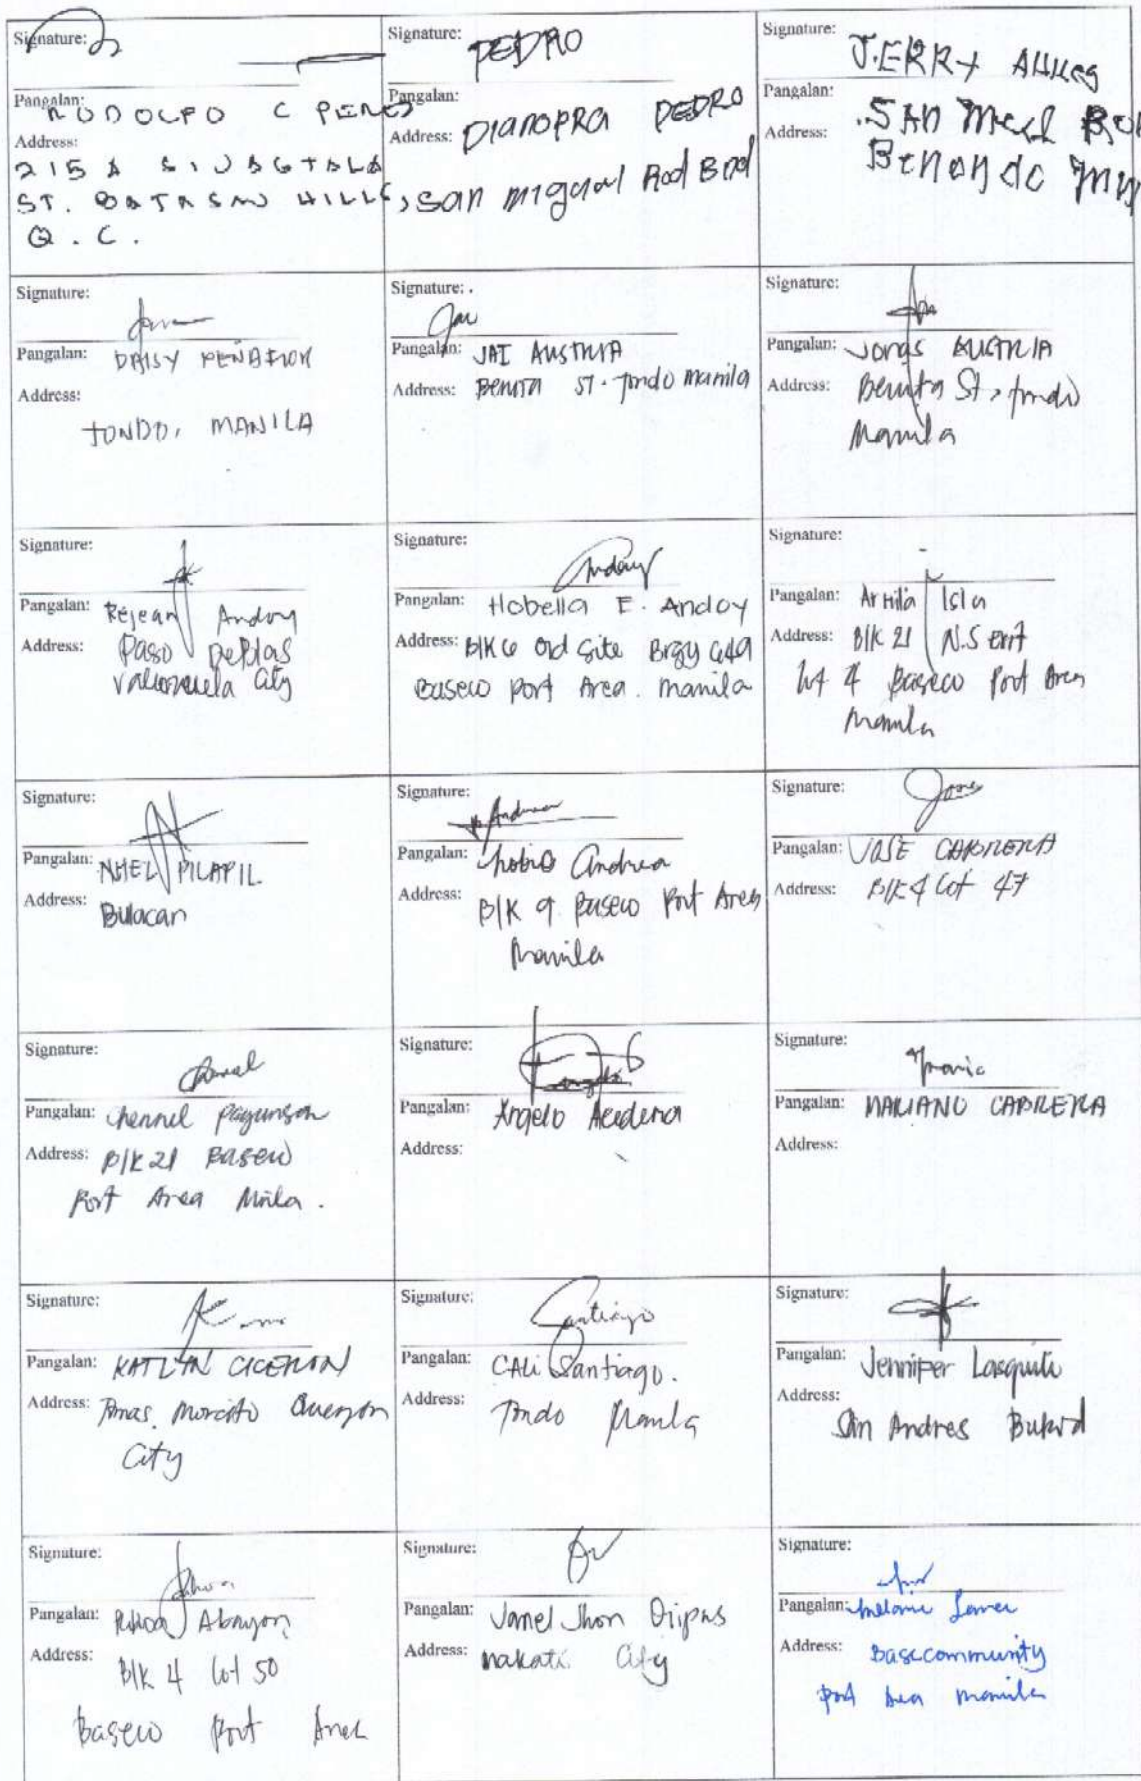 Signature:
Pangalan: RODOLFO C PERES
Address:
215 A
ST. BATASAN HILLS,
Q.C.
Signature: PEDRO
Pangalan:
Address: DIANOPRA PEDRO
San migual Rod Bnd
Signature: JERRY
Pangalan:
Address: SAN
Benondo
Signature:
Pangalan: DAISY
Address:
TONDO, MANILA
Signature: Jai
Pangalan: JAI AUSTRIA
Address: Benita St. Tondo manila
Signature:
Pangalan: Jonas AUSTRIA
Address: Benita St, tondo
Manila
Signature:
Pangalan: Rejean Andoy
Address: Paso DePlas
Valenzuela City
Signature: Andoy
Pangalan: Hobella E. Andoy
Address: Blk 6 Old Site Brgy 649
Baseco Port Area. manila
Signature:
Pangalan: Isla
Address: Blk 21 N.S
lot 4 Baseco Port Area
Manila
Signature:
Pangalan: NHEL PILAPIL
Address: Bulacan
Signature: Andrea
Pangalan: Andrea
Address: Blk 9 Baseco Port Area
Manila
Signature: Jose
Pangalan: JOSE CABRERA
Address: Blk 4 Lot 47
Signature:
Pangalan: Chennel
Address: Blk 21 Baseco
Port Area Mnila.
Signature:
Pangalan: Angelo
Address:
Signature:
Pangalan: MARIANO CABRERA
Address:
Signature:
Pangalan: KATLYN CICERON
Address: Tomas Morato Quezon
City
Signature: Santiago
Pangalan: CALi Santiago.
Address: Tondo Manila
Signature:
Pangalan: Jennifer
Address:
San Andres Bukid
Signature:
Pangalan: Abayon
Address: Blk 4 lot 50
Baseco Port Area
Signature:
Pangalan: Janel Jhon
Address: makati City
Signature:
Pangalan: melanie
Address: Basecommunity
port Area manila